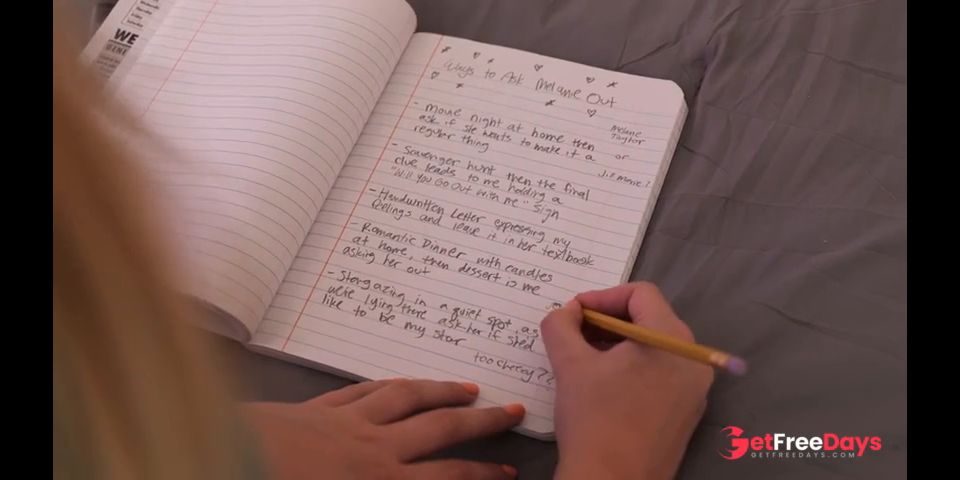 WE
Ways to Ask Melanie Out
- Movie night at home then
ask if she wants to make it a
regular thing
Melanie
Taylor
or
- Scavenger hunt then the final
clue leads to me holding a
"Will You Go Out with me" Sign
- Handwritten Letter expressing my
feelings and leave it in her textbook
- Romantic Dinner with candles
at home, then dessert is me
asking her out
- Stargazing in a quiet spot, as
we're lying there ask her if she'd
like to be my star
too cheesy??
GetFreeDays
GETFREEDAYS.COM